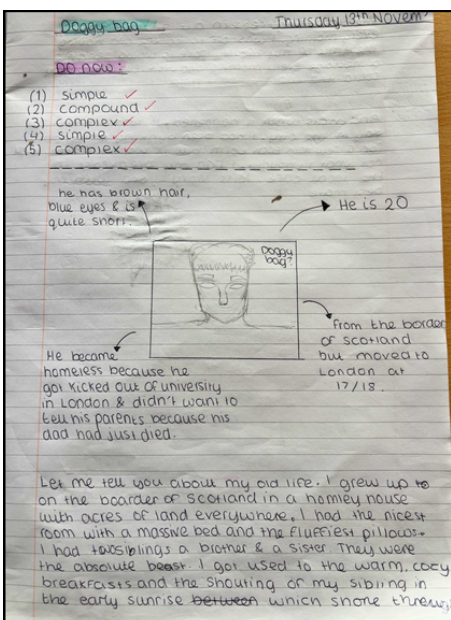 Doggy bag
Thursday 13th Novem
DO now:
(1) simple
(2) compound
(3) complex
(4) simple
(5) complex
he has brown hair,
blue eyes & is
quite short.
He is 20
Doggy
bag?
from the border
of scotland
but moved to
London at
17/18.
He became
homeless because he
got kicked out of university
in London & didn't want to
tell his parents because his
dad had just died.
Let me tell you about my old life. I grew up to
on the boarder of scotland in a homley house
with acres of land everywhere. I had the nicest
room with a massive bed and the fluffiest pillows.
I had two siblings a brother & a sister. They were
the absolute beast. I got used to the warm, cocy
breakfasts and the shouting of my sibling in
the early sunrise between which shone through